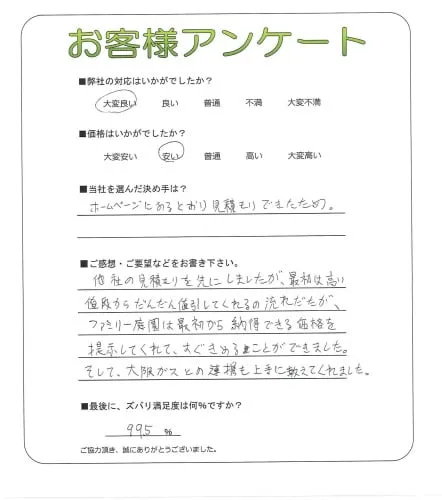 お客様アンケート
■弊社の対応はいかがでしたか？
大変良い 良い 普通 不満 大変不満
■価格はいかがでしたか？
大変安い 安い 普通 高い 大変高い
■当社を選んだ決め手は？
ホームページにあるとおり見積もりできたため。
■ご感想・ご要望などをお書き下さい。
他社の見積もりを先にしましたが、最初は高い
値段からだんだん値引してくれるの流れだたが、
ファミリー庭園は最初から納得できる価格を
提示してくれて、すぐきめることができました。
そして、大阪ガスとの連携も上手に教えてくれました。
■最後に、ズバリ満足度は何％ですか？
995 %
ご協力頂き、誠にありがとうございました。